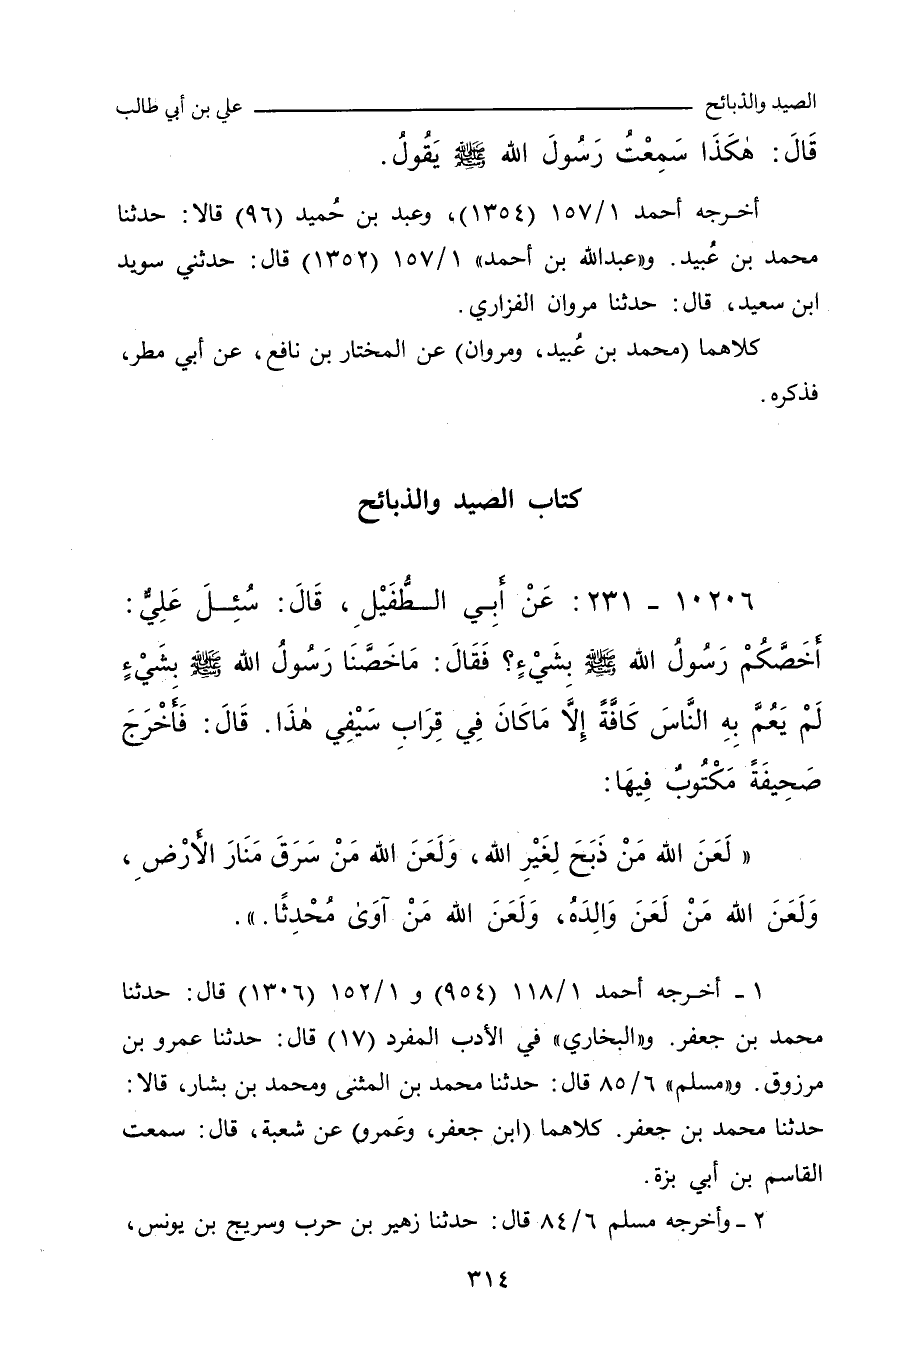 الصيد والذبائح ــــــــــــــــــــ علي بن أبي طالب
قَالَ: هٰكَذَا سَمِعْتُ رَسُولَ الله ﷺ يَقُولُ.
أخـرجه أحمد ١/١٥٧ (١٣٥٤)، وعبد بن حُميد (٩٦) قالا: حدثنا
محمد بن عُبيد. و«عبدالله بن أحمد» ١/١٥٧ (١٣٥٢) قال: حدثني سويد
ابن سعيد، قال: حدثنا مروان الفزاري.
كلاهما (محمد بن عُبيد، ومروان) عن المختار بن نافع، عن أبي مطر،
فذكره.
كتاب الصيد والذبائح
١٠٢٠٦ - ٢٣١: عَنْ أَبـي الـطُّفَيْلِ، قَالَ: سُئِـلَ عَلِيٌّ:
أَخَصَّكُمْ رَسُولُ الله ﷺ بِشَيْءٍ؟ فَقَالَ: مَاخَصَّنَا رَسُولُ الله ﷺ بِشَيْءٍ
لَمْ يَعُمَّ بِهِ النَّاسَ كَافَّةً إِلَّا مَاكَانَ فِي قِرَابِ سَيْفِي هٰذَا. قَالَ: فَأَخْرَجَ
صَحِيفَةً مَكْتُوبٌ فِيهَا:
« لَعَنَ الله مَنْ ذَبَحَ لِغَيْرِ الله، وَلَعَنَ الله مَنْ سَرَقَ مَنَارَ الأَرْضِ،
وَلَعَنَ الله مَنْ لَعَنَ وَالِدَهُ، وَلَعَنَ الله مَنْ آوَىٰ مُحْدِثًا.».
١ - أخـرجه أحمد ١/١١٨ (٩٥٤) و ١/١٥٢ (١٣٠٦) قال: حدثنا
محمد بن جعفر. و«البخاري» في الأدب المفرد (١٧) قال: حدثنا عمرو بن
مرزوق. و«مسلم» ٦/٨٥ قال: حدثنا محمد بن المثنى ومحمد بن بشار، قالا:
حدثنا محمد بن جعفر. كلاهما (ابن جعفر، وعَمرو) عن شعبة، قال: سمعت
القاسم بن أبي بزة.
٢ - وأخرجه مسلم ٦/٨٤ قال: حدثنا زهير بن حرب وسريج بن يونس،
٣١٤